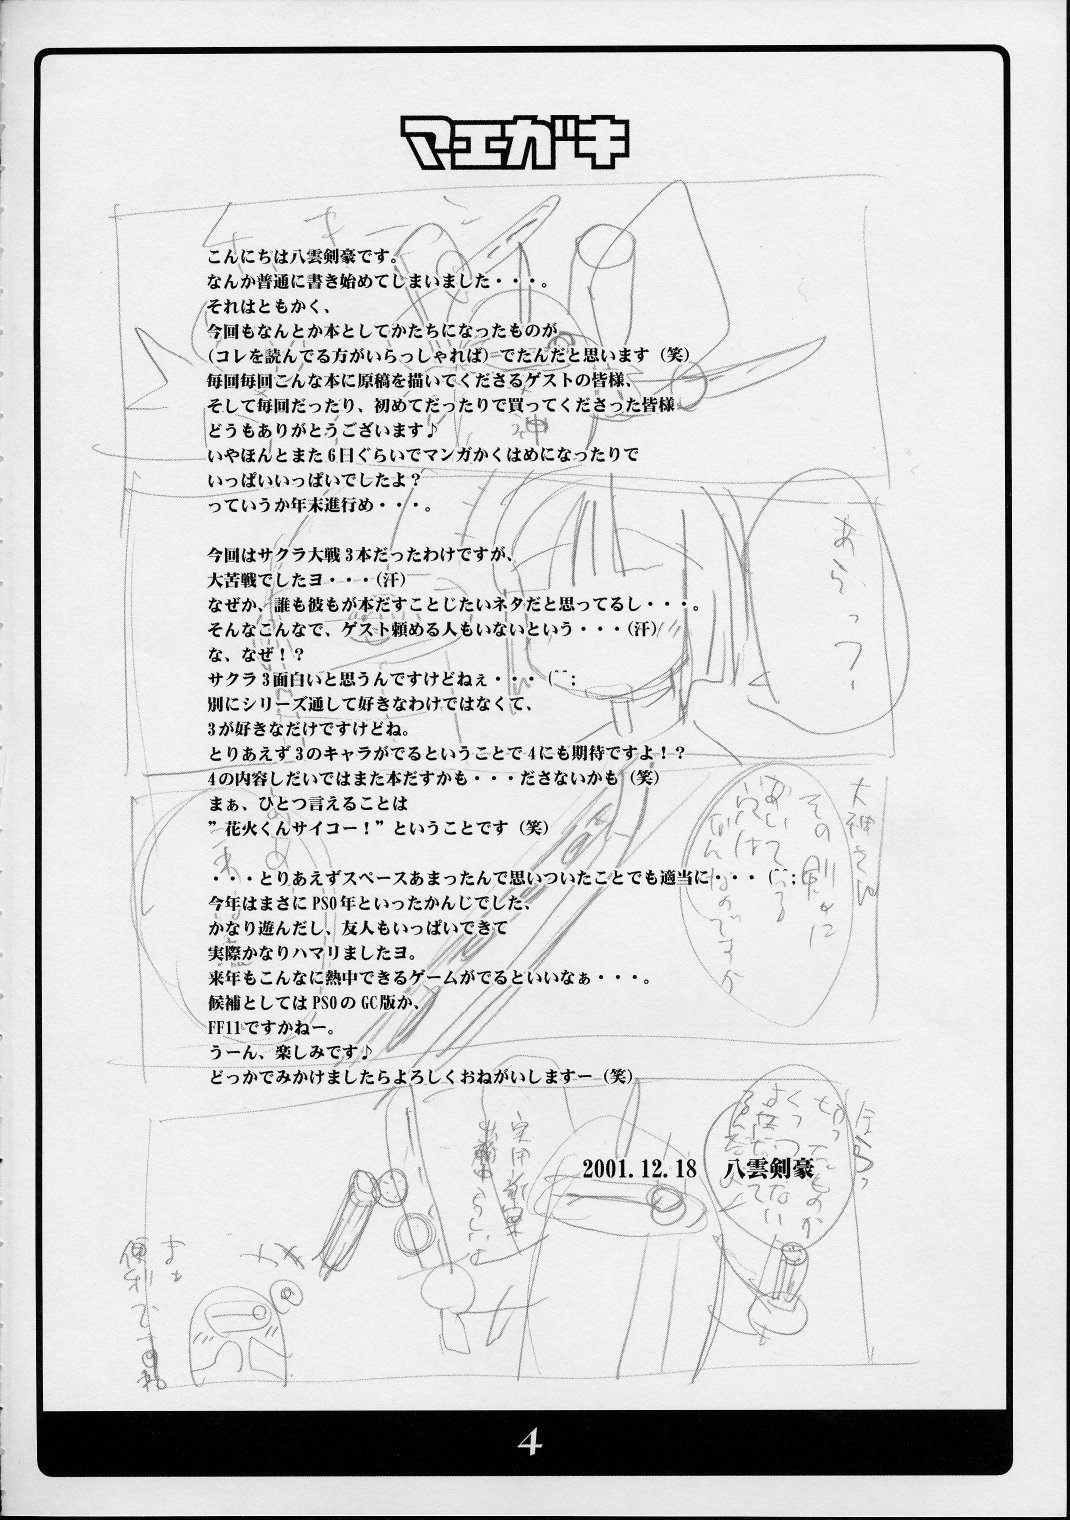 マエガキ
こんにちは八雲剣豪です。
なんか普通に書き始めてしまいました・・・。
それはともかく、
今回もなんとか本としてかたちになったものが
(コレを読んでる方がいらっしゃれば) でたんだと思います (笑)
毎回毎回こんな本に原稿を描いてくださるゲストの皆様、
そして毎回だったり、初めてだったりで買ってくださった皆様
どうもありがとうございます♪
いやほんとまた6日ぐらいでマンガかくはめになったりで
いっぱいいっぱいでしたよ?
っていうか年末進行め・・・。
今回はサクラ大戦3本だったわけですが、
大苦戦でしたヨ・・・(汗)
なぜか、誰も彼もが本だすことじたいネタだと思ってるし・・・。
そんなこんなで、ゲスト頼める人もいないという・・・(汗)
な、なぜ!?
サクラ3面白いと思うんですけどねぇ・・・ (^^;
別にシリーズ通して好きなわけではなくて、
3が好きなだけですけどね。
とりあえず3のキャラがでるということで4にも期待ですよ!?
4の内容しだいではまた本だすかも・・・ださないかも (笑)
まぁ、ひとつ言えることは
”花火くんサイコー!”ということです (笑)
・・・とりあえずスペースあまったんで思いついたことでも適当に・・・ (^^;
今年はまさにPSO年といったかんじでした、
かなり遊んだし、友人もいっぱいできて
実際かなりハマりましたヨ。
来年もこんなに熱中できるゲームがでるといいなぁ・・・。
候補としてはPSOのGC版か、
FF11ですかねー。
うーん、楽しみです♪
どっかでみかけましたらよろしくおねがいしますー (笑)
2001.12.18 八雲剣豪
あらっ
大神さん
その剣に
ついている
穴は
なんなのですか
まぁ
便利ですね
4